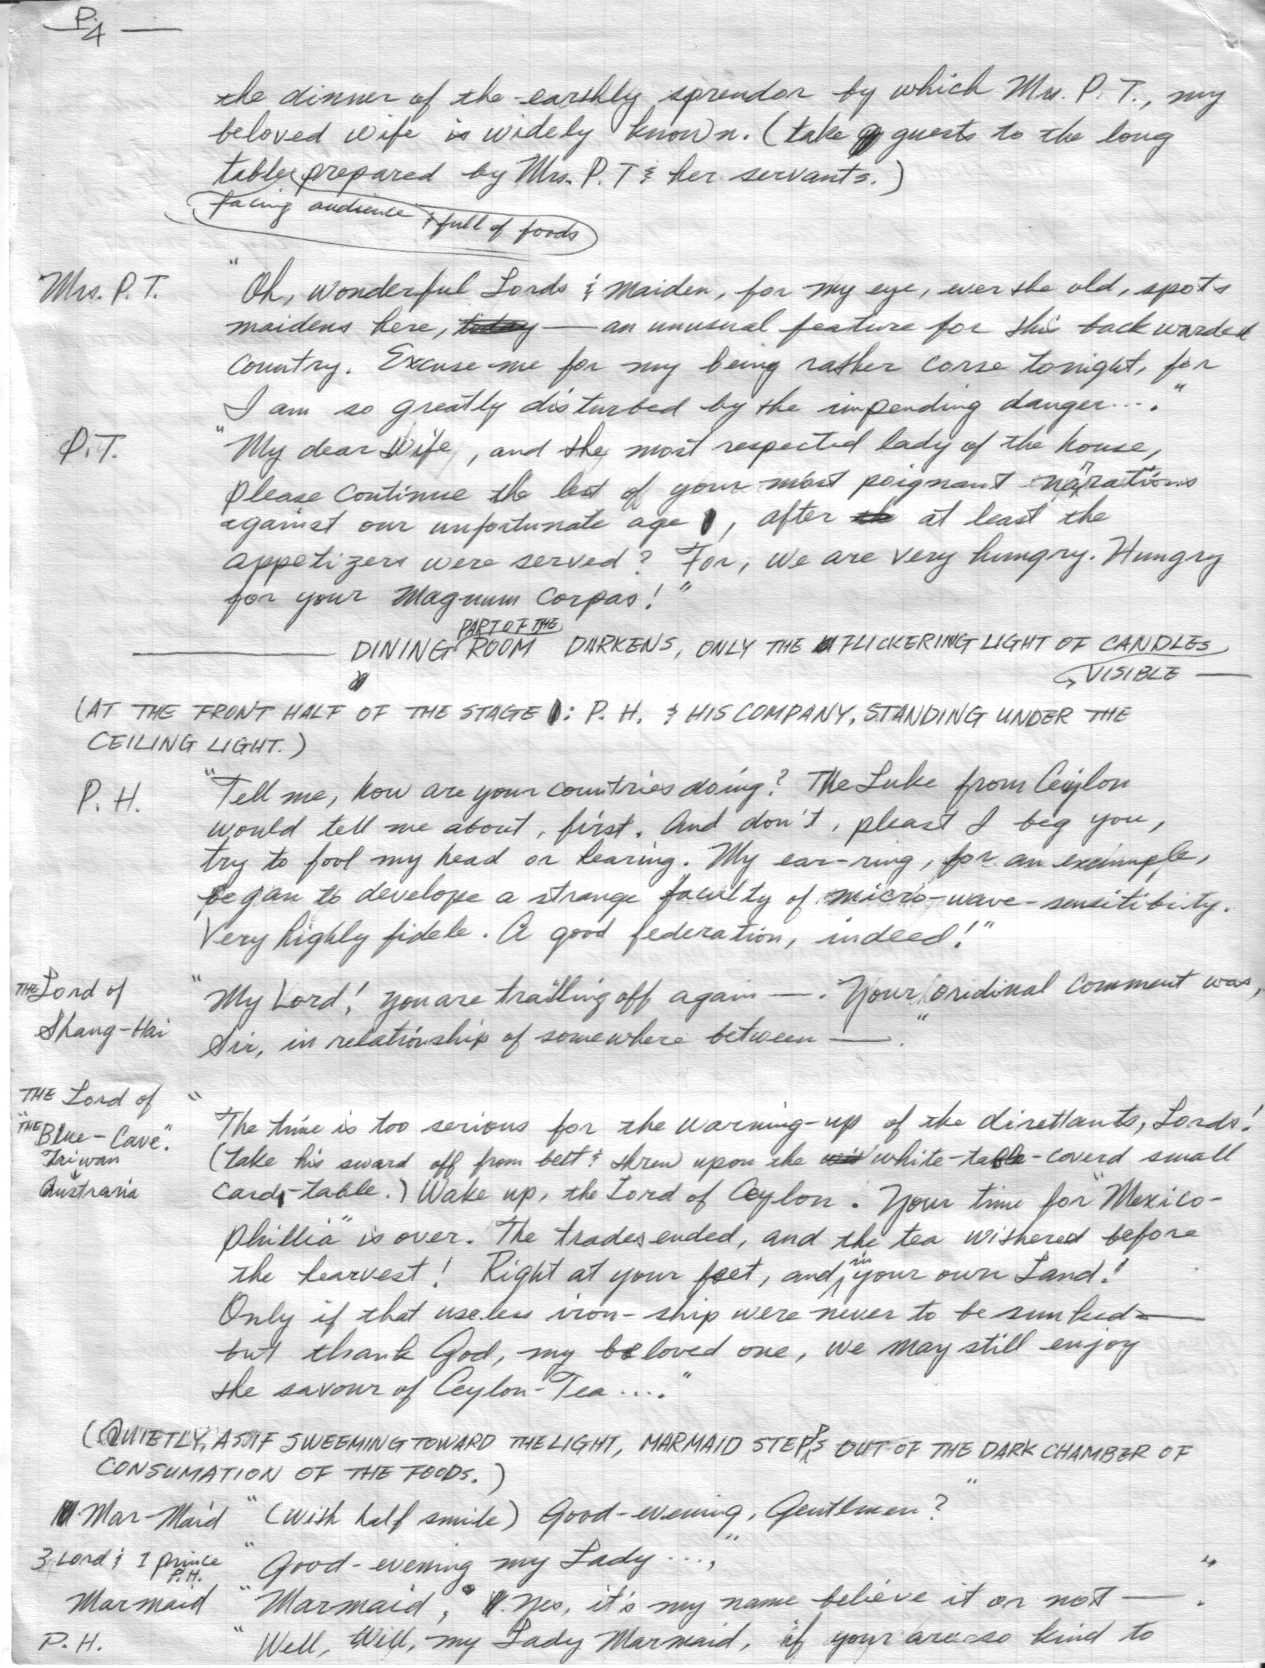 P.4 —
the dinner of the earshly sprendor by which Mrs. P. T., my
beloved wife is widely known. (take guests to the long
table prepared by Mrs. P. T & her servants.)
facing audience & full of foods
Mrs. P. T. "Oh, wonderful Lords & maiden, for my eye, ever the old, spots
maidens here, today — an unusual feature for this backwarded
country. Excuse me for my being rather corse tonight, for
I am so greatly disturbed by the impending danger...."
P.T. "My dear Wife, and the most respected lady of the house,
please continue the best of your most poignant narrations
against our unfortunate age, after at least the
appetizers were served? For, we are very hungry. Hungry
for your Magnum Corpas!"
— DINING PART OF THE ROOM DARKENS, ONLY THE FLICKERING LIGHT OF CANDLES
VISIBLE —
(AT THE FRONT HALF OF THE STAGE: P. H. & HIS COMPANY, STANDING UNDER THE
CEILING LIGHT.)
P. H. "Tell me, how are your countries doing? The Luke from Ceylon
would tell me about, first. And don't, pleast I beg you,
try to fool my head or hearing. My ear-ring, for an example,
began to develope a strange faculty of micro-wave-sensitibity.
Very highly fidele. A good federation, indeed!"
THE Lord of "My Lord! you are trailing off again —. Your oridinal comment was,
Shang-Hai Sir, in relationship of somewhere between —."
THE Lord of "
"THE Blue-Cave". The time is too serious for the warming-up of the direttants, Lords!
Taiwan (take his sward off from belt & threw upon the white-table-coverd small
Austraria card-table.) Wake up, the Lord of Ceylon. Your time for "Mexico-
phillia" is over. The trades ended, and the tea withered before
the hearvest! Right at your feet, and in your own Land!
Only if that useless iron-ship were never to be sunked —
but thank God, my beloved one, we may still enjoy
the savour of Ceylon-Tea...."
(QUIETLY, AS IF SWEEMING TOWARD THE LIGHT, MARMAID STEPPS OUT OF THE DARK CHAMBER OF
CONSUMATION OF THE FOODS.)
Mar-Maid "(with half smile) Good-evening, Gentlmen?"
3 Lord & 1 prince P.H. "Good-evening my Lady ...,"
Marmaid "Marmaid, Yes, it's my name believe it or not —."
P. H. "Well, Well, my Lady Marmaid, if your are so kind to